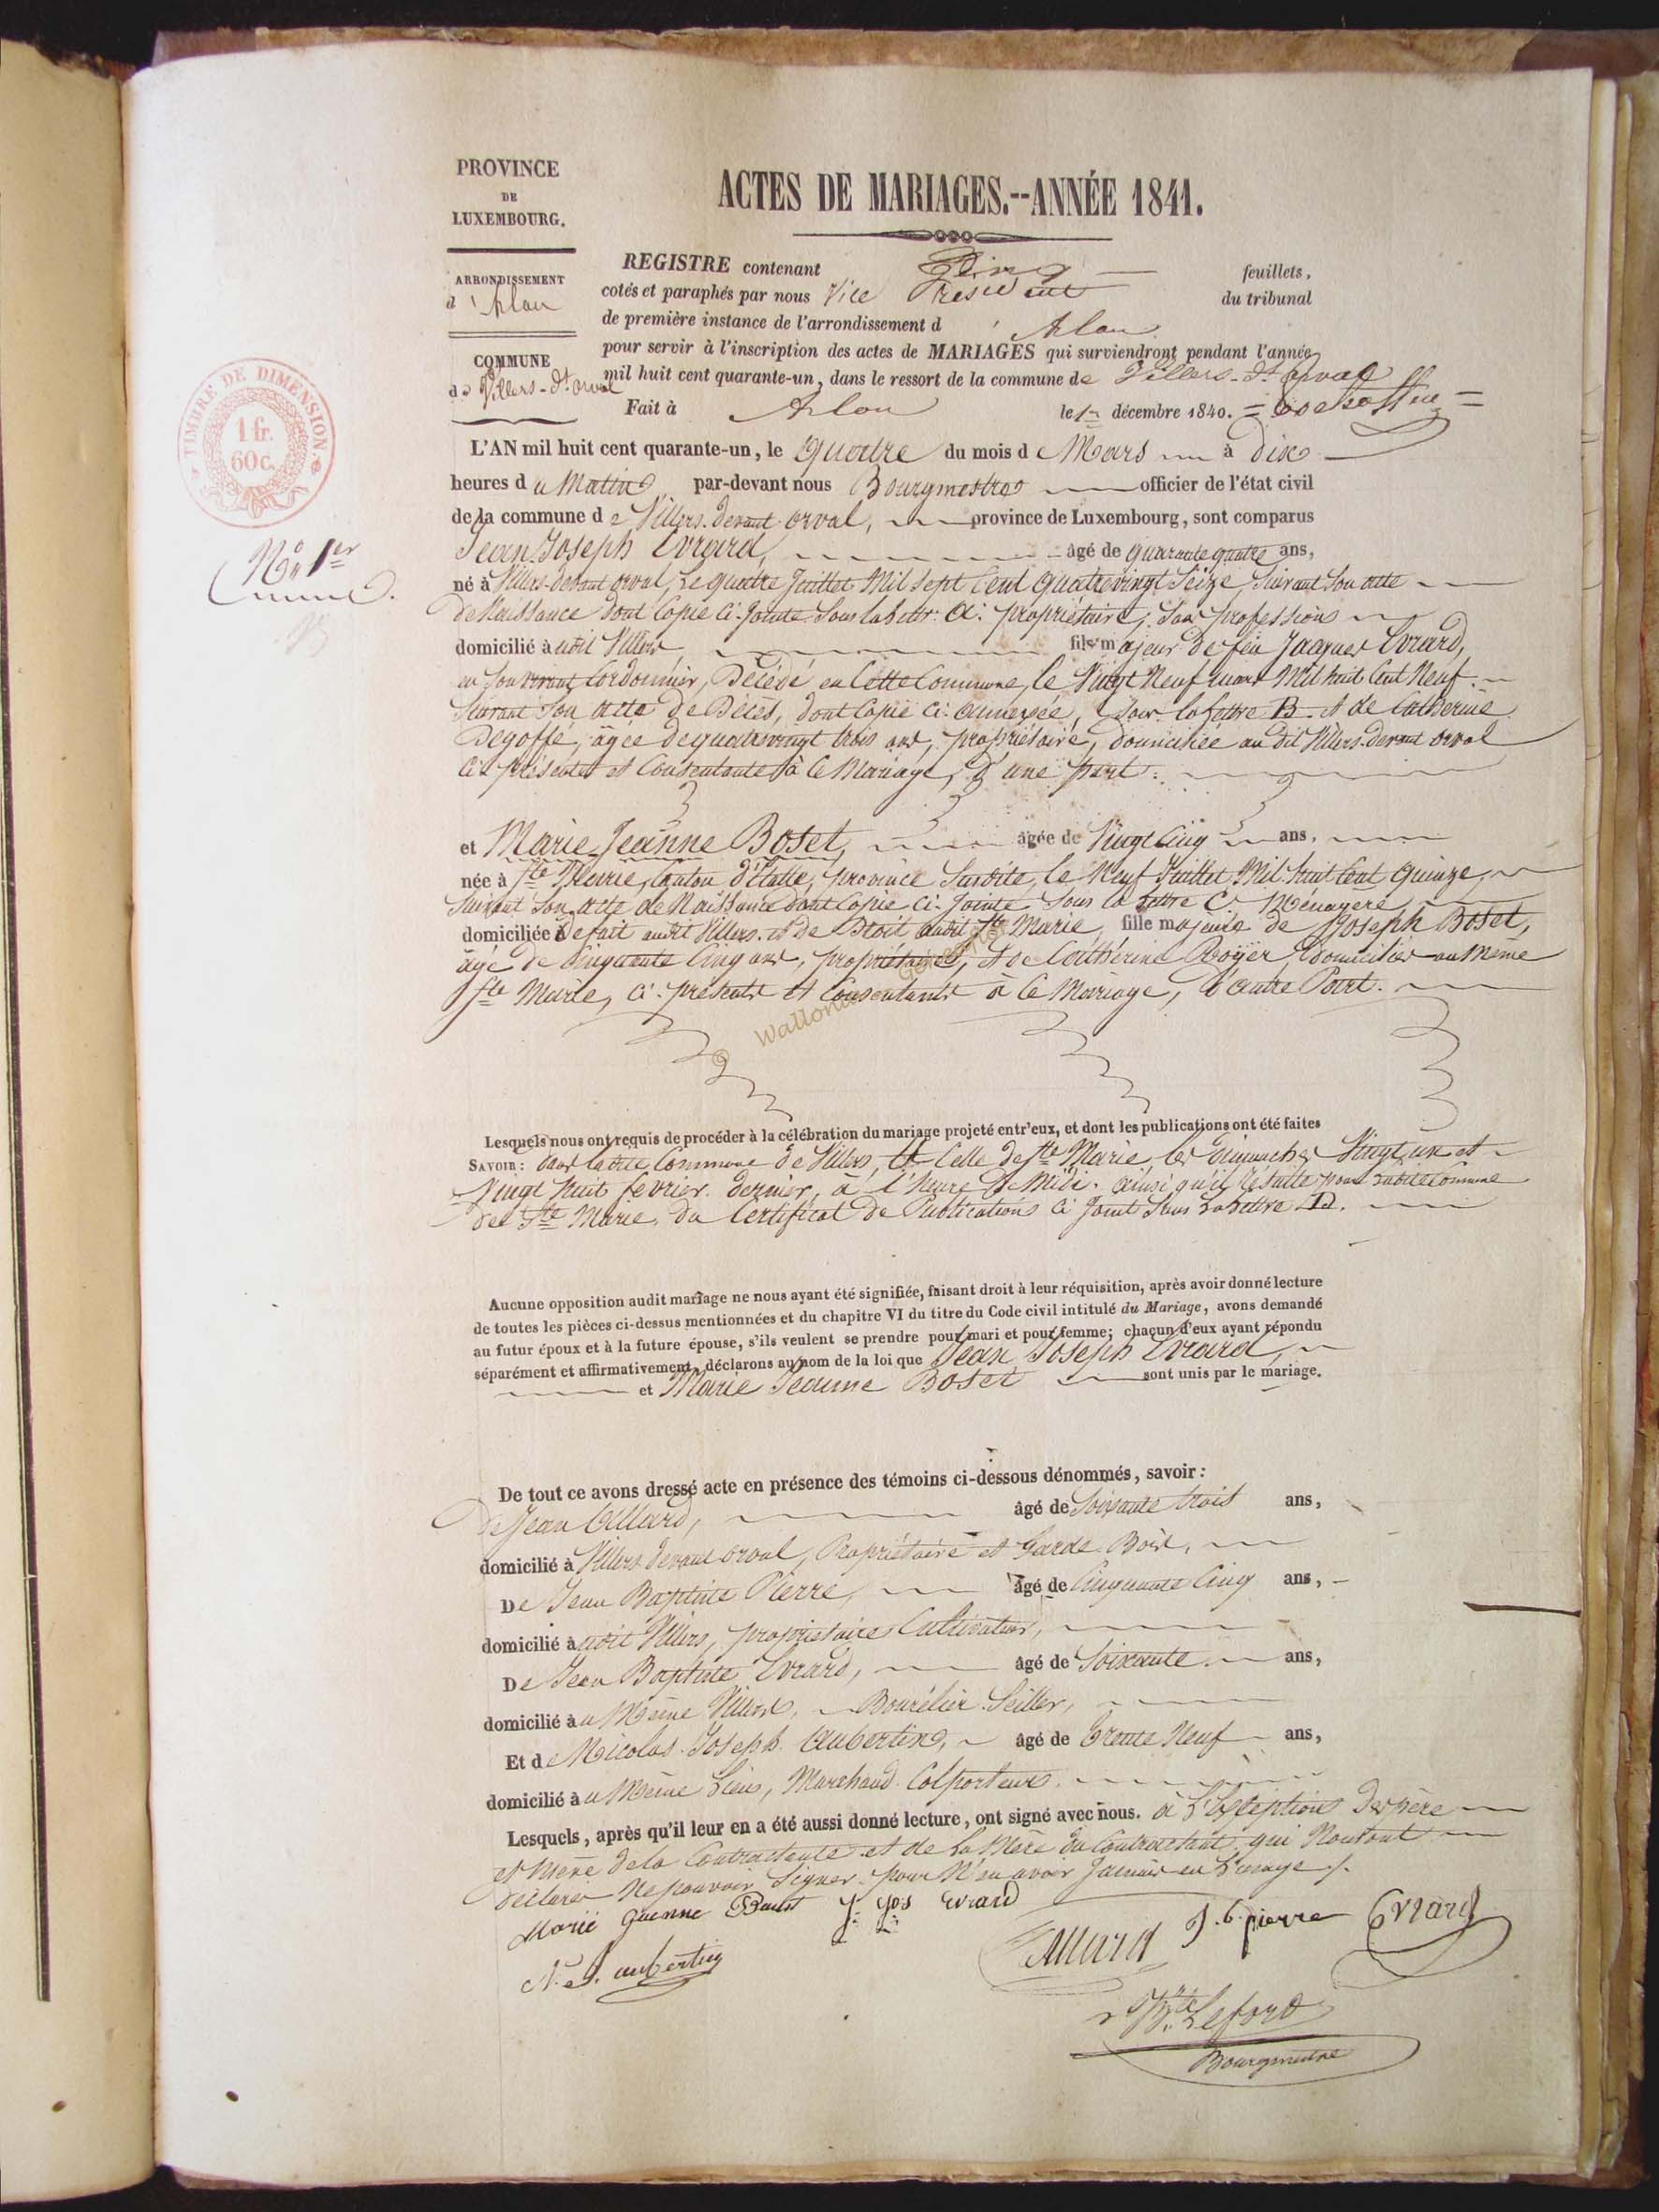 PROVINCE
DE
LUXEMBOURG.
ARRONDISSEMENT
d'Arlon
COMMUNE
de Villers-dt orval
TIMBRE DE DIMENSION.
1 fr.
60 c.
No 1er
ACTES DE MARIAGES.--ANNÉE 1841.
REGISTRE contenant Cinq feuillets,
cotés et paraphés par nous Vice Président du tribunal
de première instance de l'arrondissement d'Arlon
pour servir à l'inscription des actes de MARIAGES qui surviendront pendant l'année
mil huit cent quarante-un, dans le ressort de la commune de Villers-dt orval
Fait à Arlon le 1er décembre 1840.
L'AN mil huit cent quarante-un, le Quatre du mois de Mars à dix
heures du Matin par-devant nous Bourgmestre officier de l'état civil
de la commune de Villers-devant-orval, province de Luxembourg, sont comparus
Jean Joseph Evrard, âgé de quarante quatre ans,
né à Villers-devant orval, Le quatre Juillet Mil sept Cent Quatrevingt Seize, Suivant Son acte
de Naissance dont Copie Ci-Jointe Sous la lettre A: propriétaire, Sans profession
domicilié à udit Villers fils majeur de feu Jacques Evrard,
en Son vivant Cordonnier, Décédé en Cette Commune, le Vingt Neuf mars Mil huit Cent Neuf
Suivant Son acte de Décès, dont Copie Ci-annexée, Sous la lettre B. et de Catherine
Degoffe, agée de quatrevingt trois ans, propriétaire, domiciliée au dit Villers-devant orval
Ci présente et Consentante à Ce Mariage, d'une part:
et Marie Jeanne Boset, âgée de Vingt Cinq ans,
née à Ste Marie, Canton d'étalle, province Susdite, le Neuf Juillet Mil huit Cent Quinze,
Suivant Son acte de Naissance dont Copie Ci-Jointe Sous la lettre C Ménagère,
domiciliée De fait audit Villers et de Droit audit Ste Marie, fille majeure de Joseph Boset,
agé de Cinquante Cinq ans, propriétaire, et de Cathérine Royer, domiciliés au Même
Ste Marie, Ci-présents et Consentants à Ce Mariage, d'autre Part.
© Wallonia
Lesquels nous ont requis de procéder à la célébration du mariage projeté entr'eux, et dont les publications ont été faites
SAVOIR: dans ladite Commune de Villers, et Celle de Ste Marie les dimanches Vingt un et
Vingt huit fevrier dernier, à l'heure de Midi. ainsi qu'il Résulte pour ladite Commune
de Ste Marie, du Certificat de Publications Ci Joint Sous la lettre D.
Aucune opposition audit mariage ne nous ayant été signifiée, faisant droit à leur réquisition, après avoir donné lecture
de toutes les pièces ci-dessus mentionnées et du chapitre VI du titre du Code civil intitulé du Mariage, avons demandé
au futur époux et à la future épouse, s'ils veulent se prendre pour mari et pour femme; chacun d'eux ayant répondu
séparément et affirmativement, déclarons au nom de la loi que Jean Joseph Evrard
et Marie Jeanne Boset sont unis par le mariage.
De tout ce avons dressé acte en présence des témoins ci-dessous dénommés, savoir:
de Jean Allard, âgé de Soixante trois ans,
domicilié à Villers devant orval, Propriétaire et Garde Bois,
De Jean Baptiste Pierre, âgé de Cinquante Cinq ans,
domicilié à udit Villers, propriétaire Cultivateur,
De Jean Baptiste Evrard, âgé de Soixante ans,
domicilié au Même Villers, Bourélier Seiller,
Et de Nicolas Joseph Aubertin, âgé de trente Neuf ans,
domicilié au Même Lieu, Marchand Colporteur.
Lesquels, après qu'il leur en a été aussi donné lecture, ont signé avec nous. à L'exception des père
et mère de la Contractante et de la Mère du Contractant qui Nous ont
déclarer Ne pouvoir Signer pour N'en avoir Jamais eu L'usage /.
Marie Jeanne Boset J. Jos Evrard
Allard J. b. pierre Evrard
N. J. aubertin
Lefort
Bourgmestre